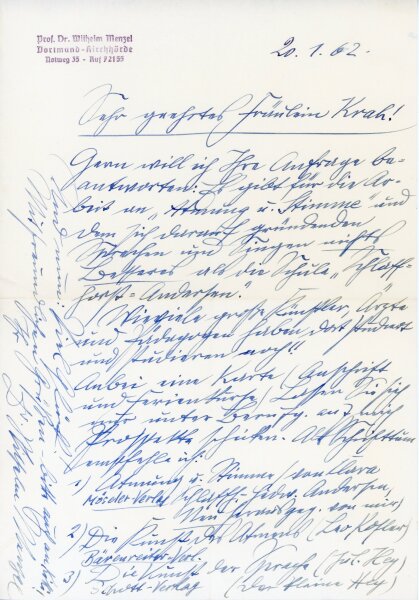 Prof. Dr. Wilhelm Menzel
Dortmund-Kirchhörde
Notweg 35 - Ruf 72155
20.1.62.
Sehr geehrtes Fräulein Krah!
Gern will ich Ihre Anfrage be-
antworten: Es gibt für die Ar-
beit an „Atmung u. Stimme" und
dem sich darauf gründenden
Sprechen und Singen nichts
Besseres als die Schule „Schlaff-
horst-Andersen".
Wieviele große Künstler, Ärzte
und Pädagogen haben dort studiert
und studieren noch!!
Anbei eine Karte (Anschrift
und Ferienkurse). Lassen Sie sich
nur unter Berufg. auf mich
Prospekte schicken. Als Schrifttum
empfehle ich:
1) Atmung u. Stimme (von Clara
Möseler-Verlag Schlaffh.- Hedw. Andersen,
Neu herausgeg. von mir)
2) Die Kunst des Atmens (Leo Kofler)
Bärenreiter-Verl.
3) Die Kunst der Sprache (Jul. Hey)
Schott-Verlag (Der kleine Hey)
Und nun: viel Glück!
Mit freundlichen Grüßen
Ihr
Dr. Wilhelm Menzel